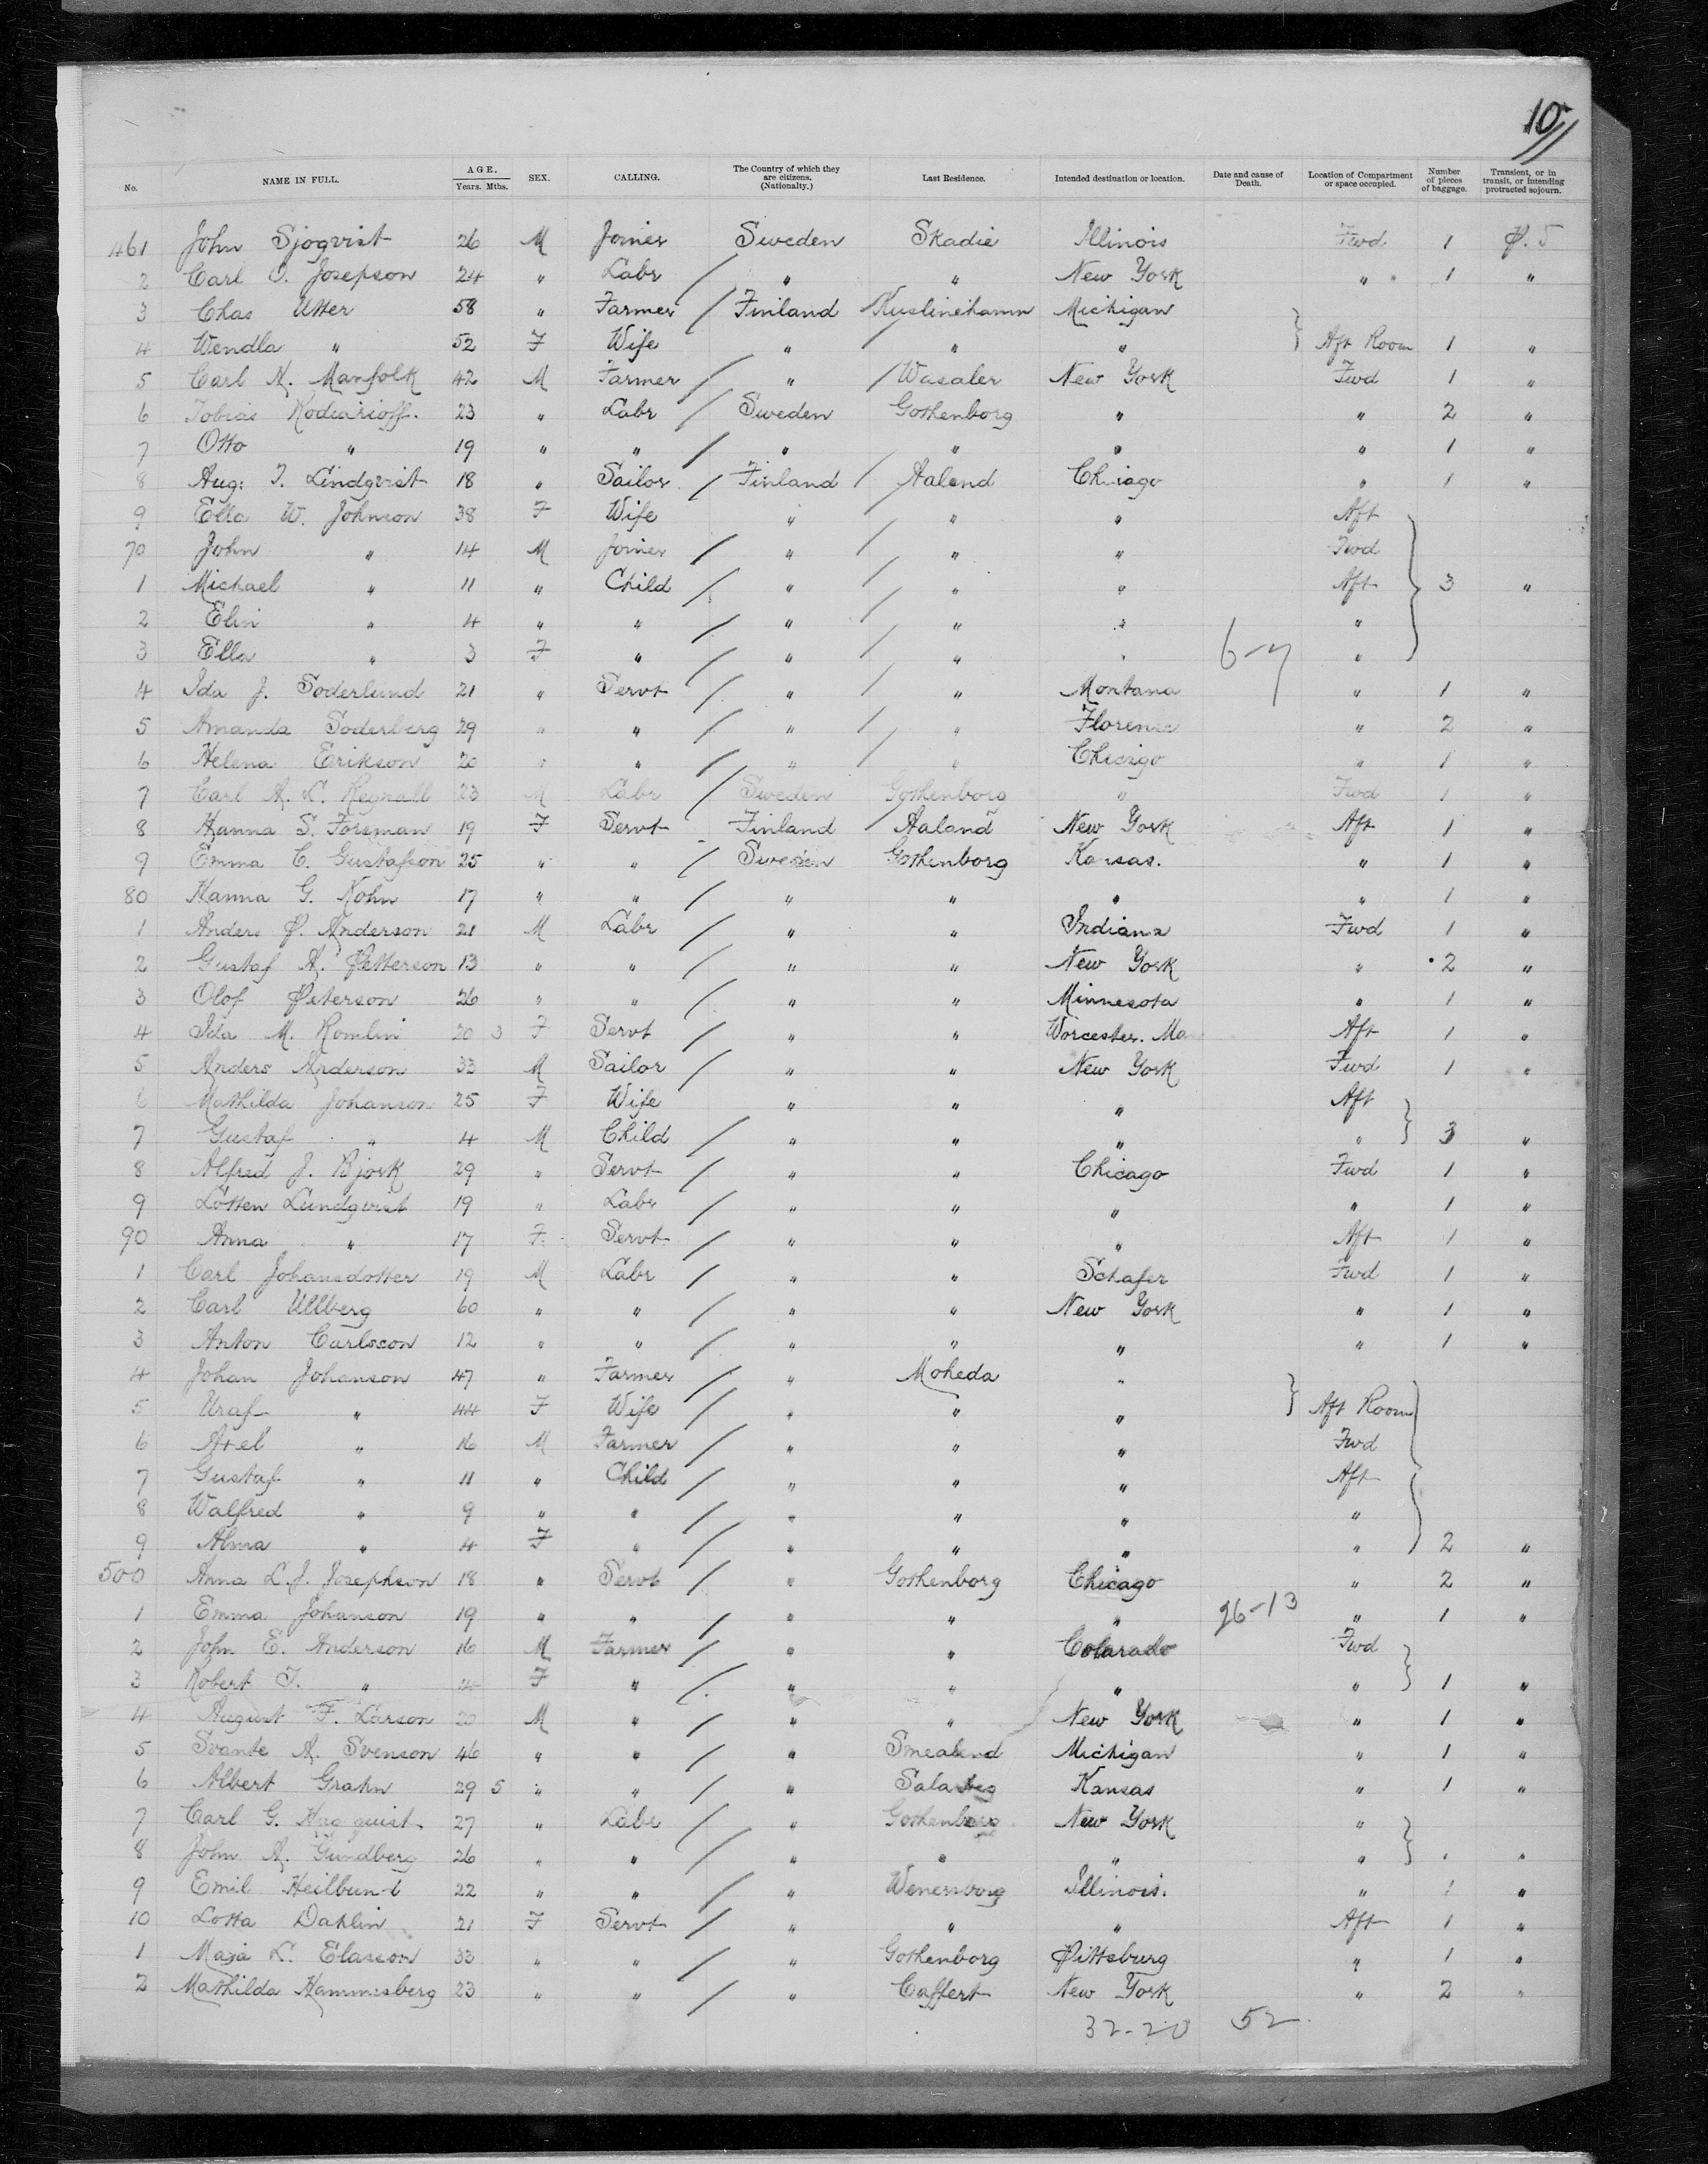 10
No. NAME IN FULL. AGE. Years. Mths. SEX. CALLING. The Country of which they are citizens. (Nationality.) Last Residence. Intended destination or location. Date and cause of Death. Location of Compartment or space occupied. Number of pieces of baggage. Transient, or in transit, or intending protracted sojourn.
461 John Sjoqvist 26 M Joiner Sweden Skadie Illinois Fwd 1 P. S
2 Carl O. Josepson 24 " Labr / " " New York " 1 "
3 Chas Utter 58 " Farmer / Finland / Michigan
4 Wendla " 52 F Wife " / " " } Aft Room 1 "
5 Carl N. Manfolk 42 M Farmer / " / Wasaler New York Fwd 1 "
6 Tobias 23 " Labr / Sweden Gothenborg " " 2 "
7 Otto " 19 " " / " " " " 1 "
8 Aug: T. Lindqvist 18 " Sailor / Finland / Aaland Chicago " 1 "
9 Ella W. Johnson 38 F Wife " / " " Aft
70 John " 14 M Joiner / " / " " Fwd
1 Michael " 11 " Child / " / " " Aft } 3 "
2 Elin " 4 " " / " / " " "
3 Ella " 3 F " / " / " " 6-7 "
4 Ida J. Soderlund 21 " Servt / " / " Montana " 1 "
5 Amanda Soderberg 29 " " / " / " Florence " 2 "
6 Helena Erikson 20 " " / " / " Chicago " 1 "
7 Carl A. L. Regnall 23 M Labr / Sweden Gothenborg " Fwd 1 "
8 Hanna S. Forsman 19 F Servt Finland / Aaland New York Aft 1 "
9 Emma C. Gustafson 25 " " / Sweden Gothenborg Kansas. " 1 "
80 Hanna G. Kohn 17 " " / " " " " 1 "
1 Anders P. Anderson 21 M Labr / " " Indiana Fwd 1 "
2 Gustaf A. Petterson 13 " " / " " New York " 2 "
3 Olof Peterson 26 " " / " " Minnesota " 1 "
4 Ida M. Romlin 20 3 F Servt / " " Worcester. Ma Aft 1 "
5 Anders Anderson 33 M Sailor / " " New York Fwd 1 "
6 Mathilda Johanson 25 F Wife " " " Aft
7 Gustaf " 4 M Child / " " " " } 3 "
8 Alfred J. Bjork 29 " Servt / " " Chicago Fwd 1 "
9 Lotten Lundqvist 19 " Labr / " " " " 1 "
90 Anna " 17 F. Servt / " " " Aft 1 "
1 Carl Johansdotter 19 M Labr / " " Schafer Fwd 1 "
2 Carl Ullberg 60 " " / " " New York " 1 "
3 Anton Carlsson 12 " " / " " " " 1 "
4 Johan Johanson 47 " Farmer / " Moheda "
5 " 44 F Wife / " " " } Aft Room
6 Axel " 16 M Farmer / " " " Fwd
7 Gustaf " 11 " Child / " " " Aft
8 Walfred " 9 " " / " " " "
9 Alma " 4 F " / " " " " 2 "
500 Anna L. J. Josephson 18 " Servt / " Gothenborg Chicago " 2 "
1 Emma Johanson 19 " " / " " " 26-13 " 1 "
2 John E. Anderson 16 M Farmer / " " Colarado Fwd
3 Robert T. " F " / " " " " } 1 "
4 August F. Larson 20 M " / " " New York " 1 "
5 Svante A. Svenson 46 " " / " Smealend Michigan " 1 "
6 Albert Grahn 29 5 " " / " Kansas " 1 "
7 Carl G. Hagquist 27 " Labr / " Gothenborg New York "
8 John A. Gundberg 26 " " / " " " " } " "
9 Emil Heilbunt 22 " " / " Wenersborg Illinois. " 1 "
10 Lotta Dahlin 21 F Servt / " " " Aft 1 "
1 Maja L. Elarson 33 " " / " Gothenborg Pittsburg " 1 "
2 Mathilda Hammesberg 23 " " / " Caffert New York " 2 "
32-20 52